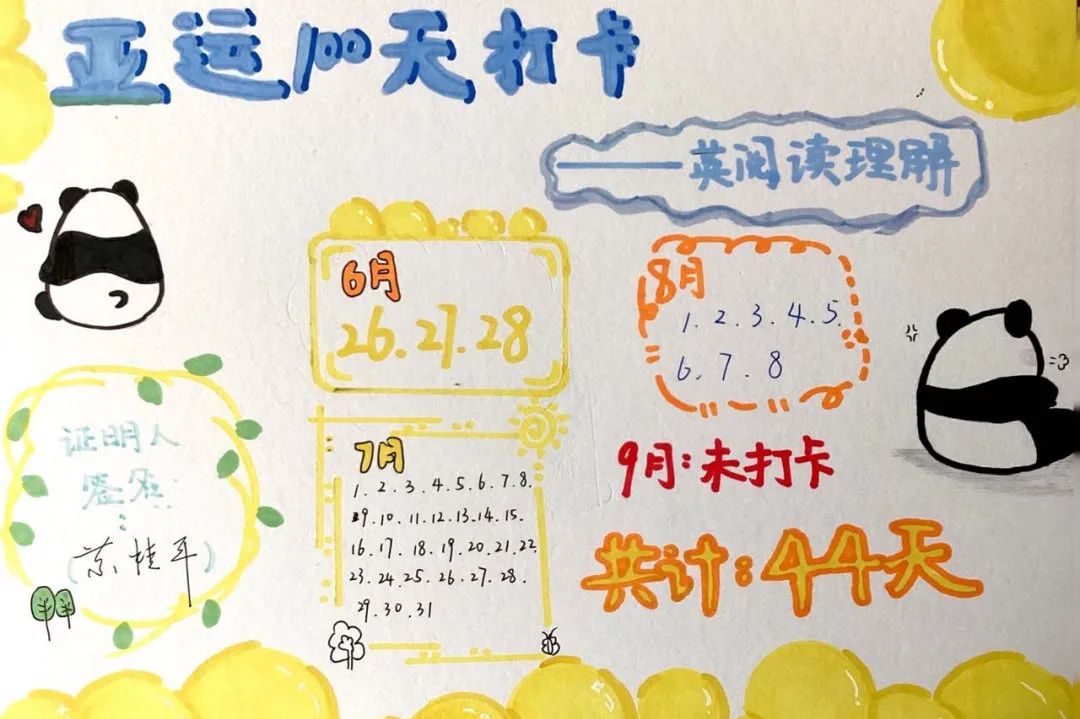 亚运100天打卡
——英阅读理解
6月
26.27.28
8月
1.2.3.4.5.
6.7.8
7月
1.2.3.4.5.6.7.8.
9.10.11.12.13.14.15.
16.17.18.19.20.21.22.
23.24.25.26.27.28.
29.30.31
9月:未打卡
共计:44天
证明人
签名:
(苏桂平)